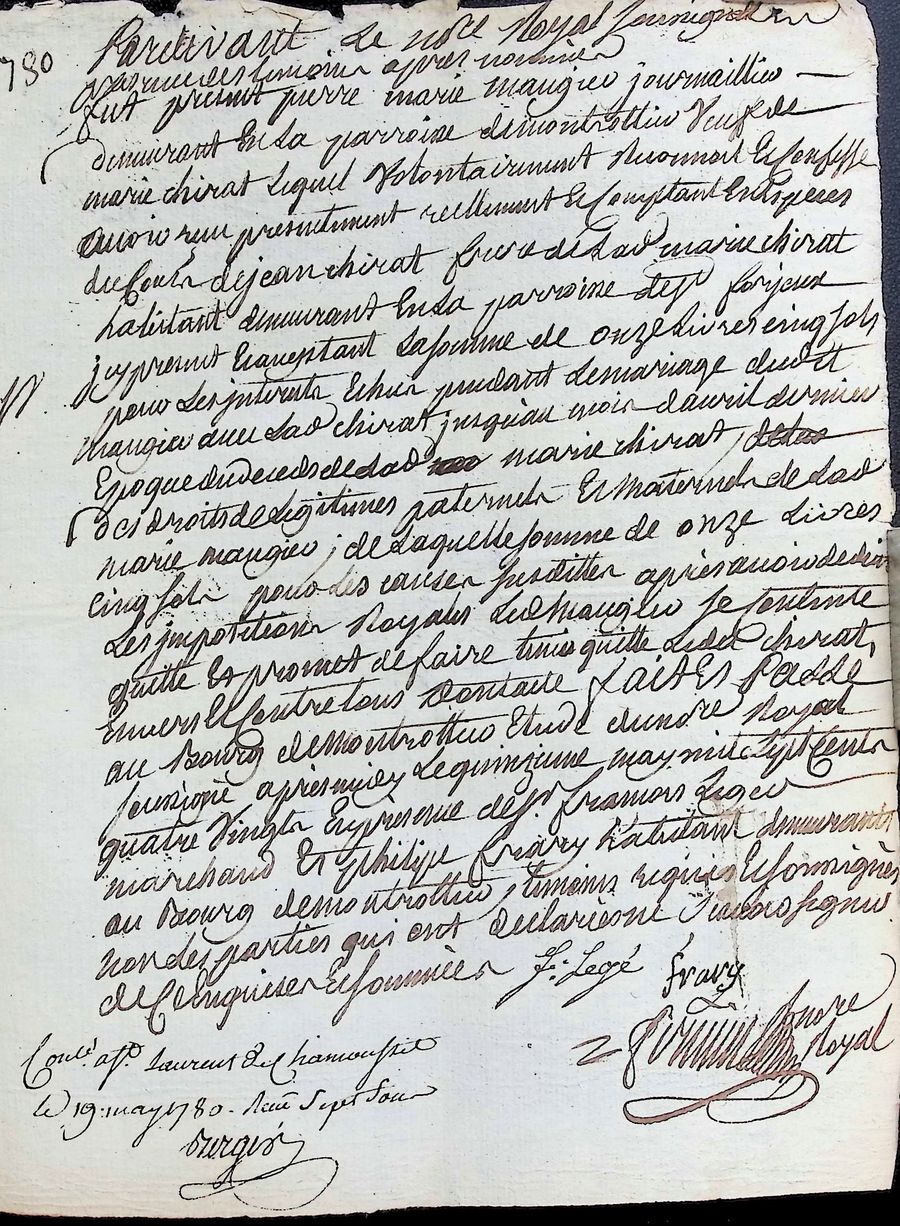 1780
Pardevant Le no.re Royal soussigné Et En
presence des temoins apres nommés
fut present pierre marie maugier journaillier
demeurant En La parroisse demontrottier Veuf de
marie chirat Lequel Volontairement Reconnoit Et Confesse
avoir reçu presentement reellement Et Comptant En Especes
du Cours de jean chirat frere de Lad. marie chirat
habitant demeurant En La parroisse de s.t forjeux
jcy present Et acceptant La somme de onze Livres cinq sols
pour Les jnterets Echus pendant Le mariage dudit
maugier avec Lad chirat jusqu'au mois d'avril dernier
Epoque du deceds de Lad marie chirat,
des droits de Legitimes paternels Et maternels de Lad
marie maugier ; de Laquelle somme de onze Livres
cinq sols pour Les causes susdittes apres avoir deduit
Les jmpositions Royales Led maugier se contente
quitte Et promet de faire tenir quitte Ledit chirat,
Envers Et Contre tous Dont acte fait Et Passé
au Bourg de montrottier Etude du no.re Royal
soussigné apres midy Le quinzieme may mil sept Cents
quatre Vingts En presence de s.r francois Leger
marchand Et philipe frary habitant demeurants
au Bourg de montrottier, temoins requis Et soussignés
non des parties qui ont declaré ne sçavoir signer
de Ce Enquises Et sommées F: Legé frary
no.re
Royal
Conl.é a s.t Laurent de Chamousset
le 19. may 1780. Reçu sept sous